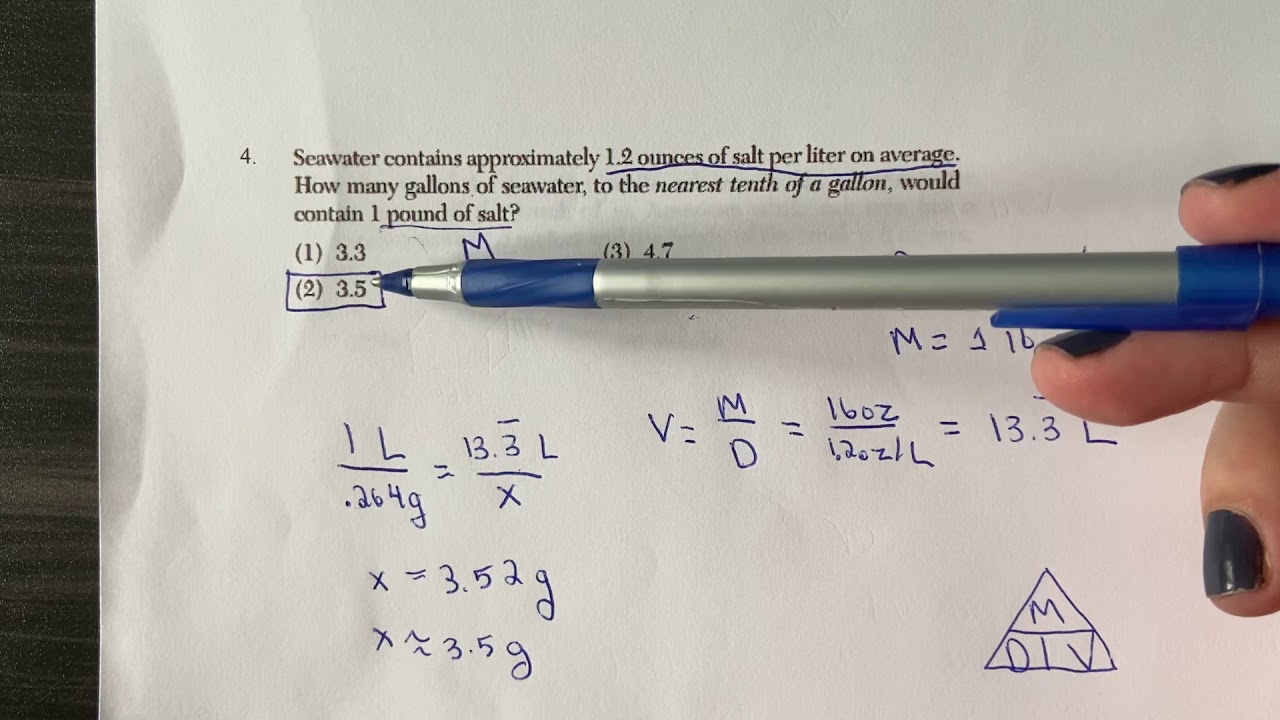 4. Seawater contains approximately 1.2 ounces of salt per liter on average.
How many gallons of seawater, to the nearest tenth of a gallon, would
contain 1 pound of salt?
(1) 3.3 M (3) 4.7
(2) 3.5
M = 1 lb
V = M/D = 16oz/1.2oz/L = 13.3̅ L
1 L/.264g = 13.3̅ L/x
x = 3.52g
x ≈ 3.5g
M
D V